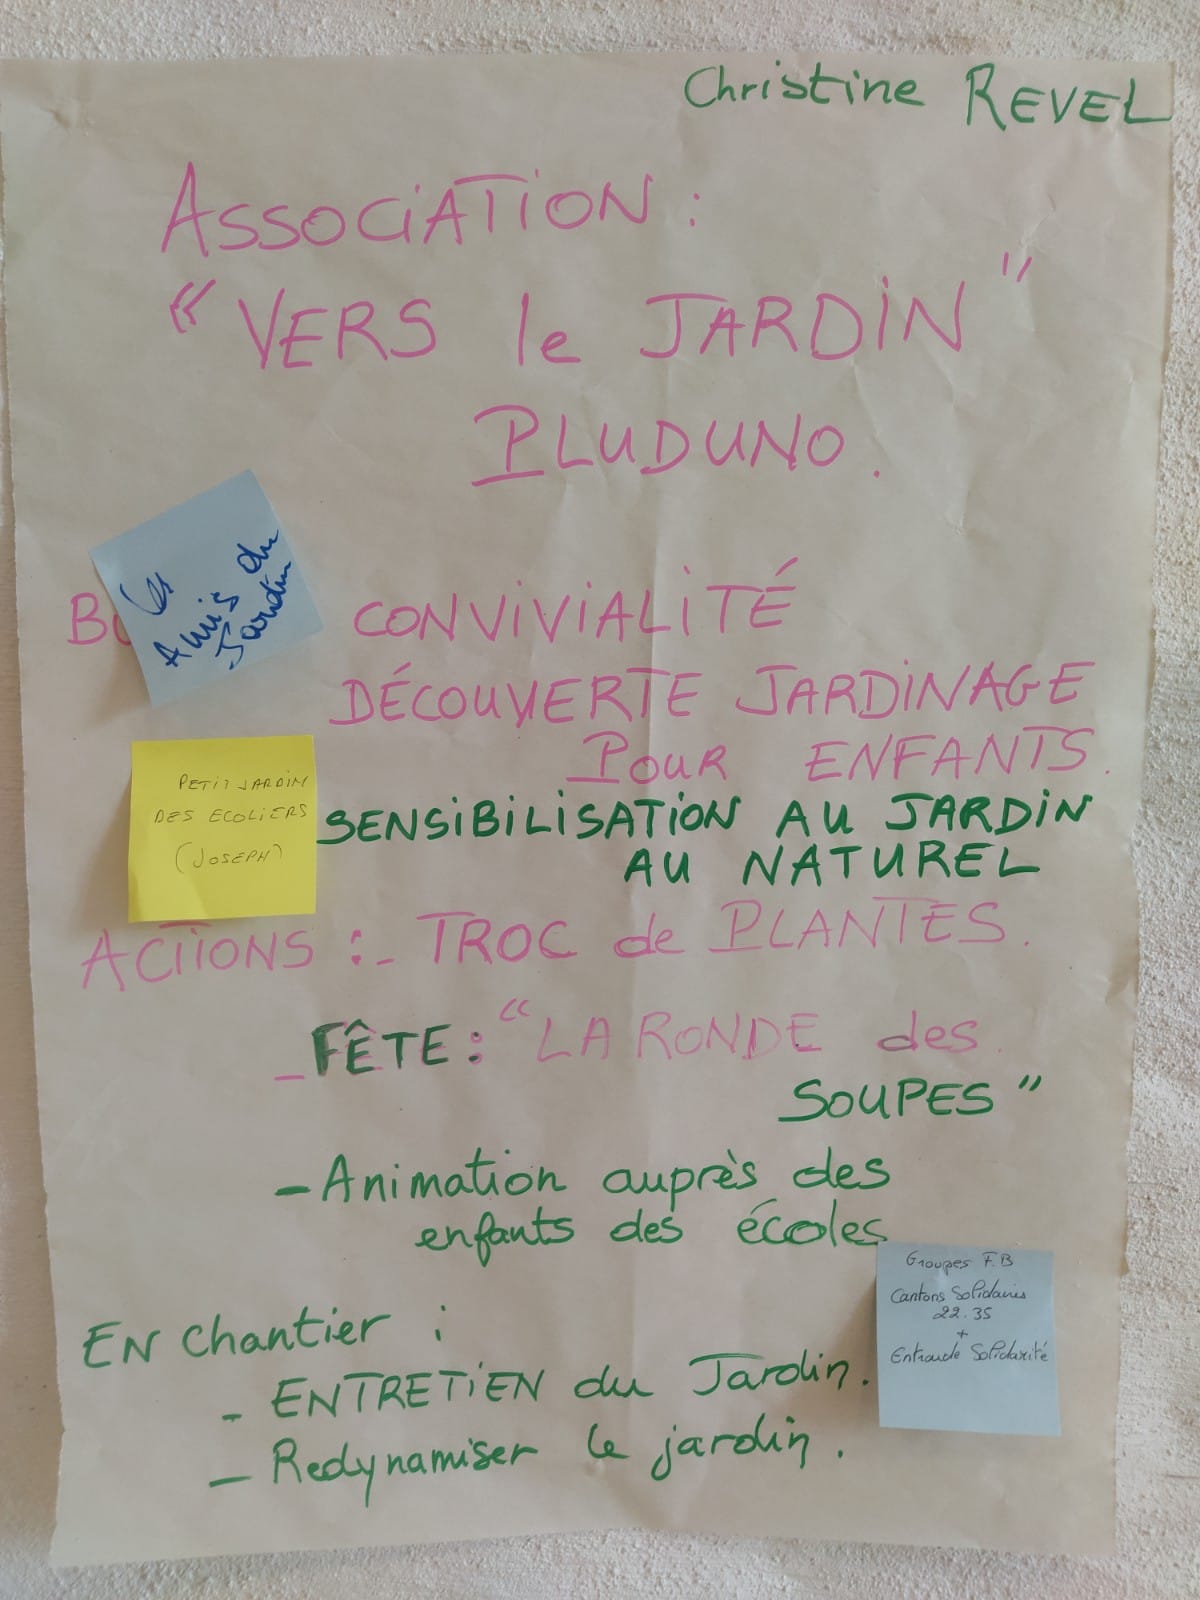 Christine REVEL
ASSOCIATION :
“ VERS le JARDIN ”
PLUDUNO.
Les
Amis du
Jardin
CONVIVIALITÉ
DÉCOUVERTE JARDINAGE
POUR ENFANTS.
PETIT JARDIN
DES ECOLIERS
(JOSEPH)
SENSIBILISATION AU JARDIN
AU NATUREL
ACTIONS : - TROC de PLANTES.
- FÊTE : “ LA RONDE des
SOUPES ”
- Animation auprès des
enfants des écoles
Groupes F.B
Cantons Solidaires
22.35
+
Entraide Solidarité
EN chantier :
- ENTRETIEN du Jardin.
- Redynamiser le jardin.